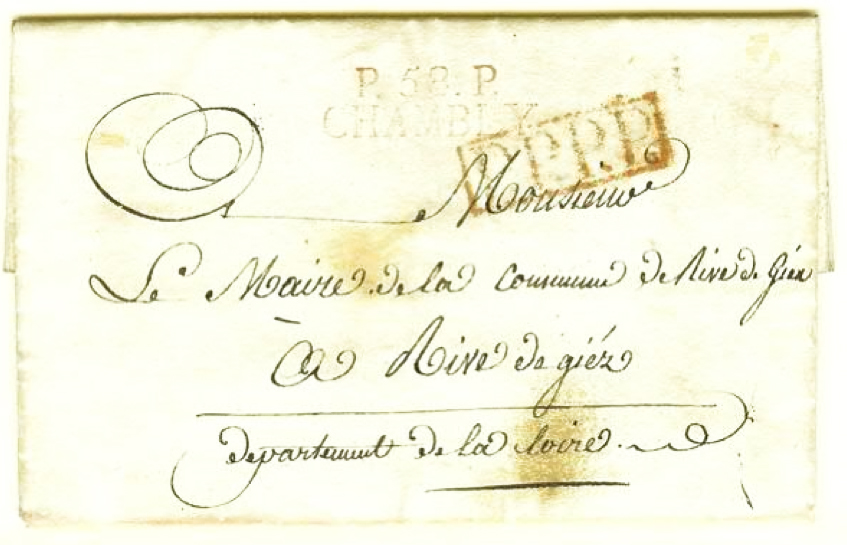 P. 58. P.
CHAMBLY
P.P.P.P.
Monsieur
Le Maire de la Commune de Rive de Giéz
à Rive de giéz
departement de la loire.